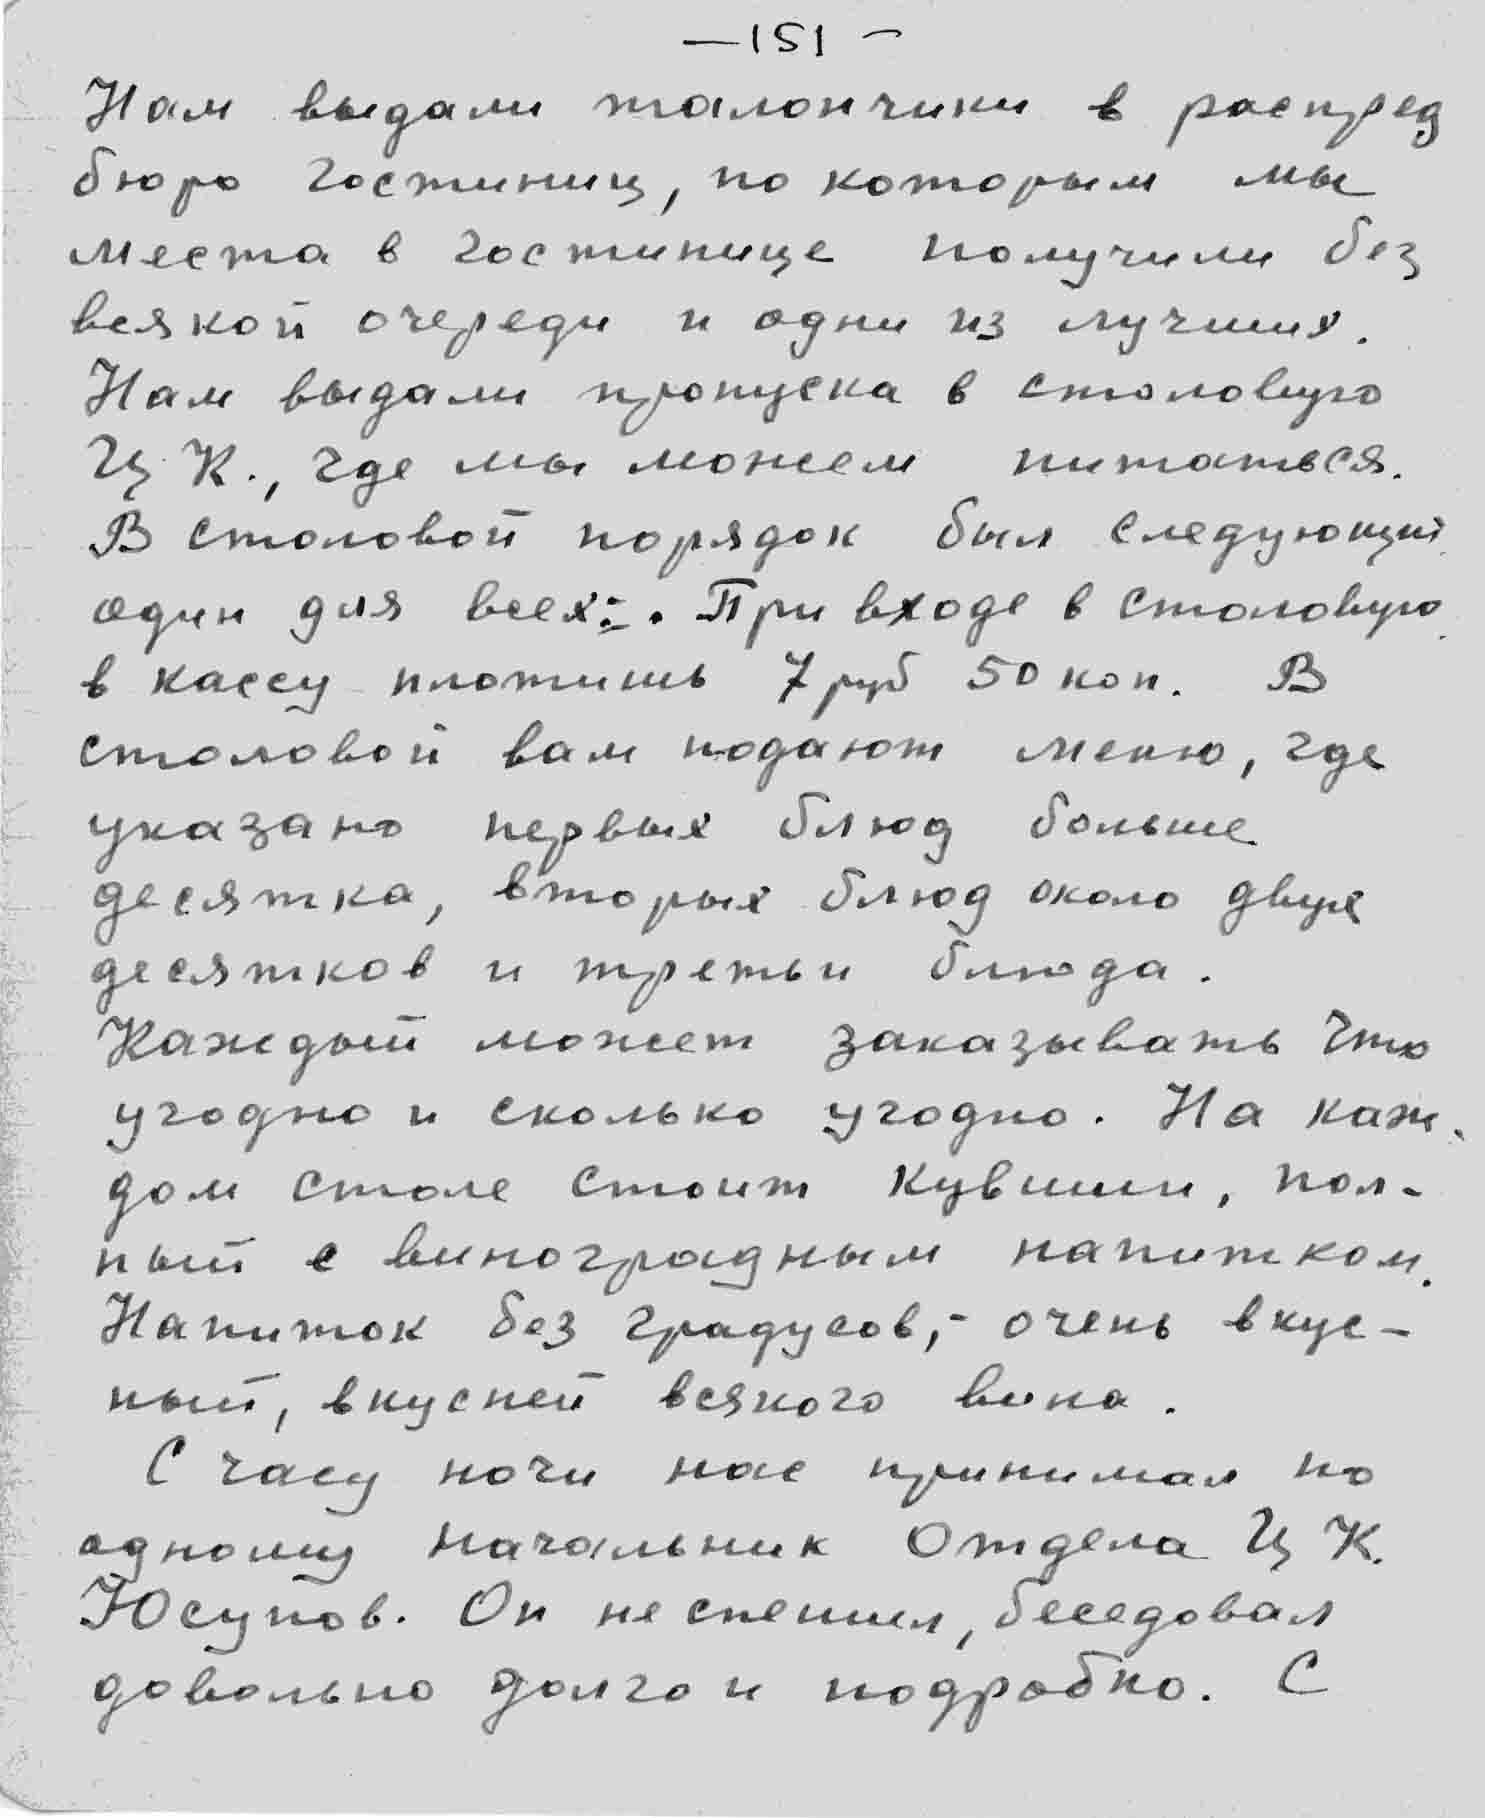 —151—
Нам выдали талончики в распред
бюро гостиниц, по которым мы
места в гостинице получили без
всякой очереди и одни из лучших.
Нам выдали пропуска в столовую
Ц К., где мы можем питаться.
В столовой порядок был следующий
один для всех:-. При входе в столовую
в кассу платишь 7 руб 50 коп. В
столовой вам подают меню, где
указано первых блюд больше
десятка, вторых блюд около двух
десятков и третьи блюда.
Каждый может заказывать что
угодно и сколько угодно. На каж-
дом столе стоит кувшин, пол-
ный с виноградным напитком.
Напиток без градусов,- очень вкус-
ный, вкусней всякого вина.
С часу ночи нас принимал по
одному начальник Отдела Ц К.
Юсупов. Он не спешил, беседовал
довольно долго и подробно. С